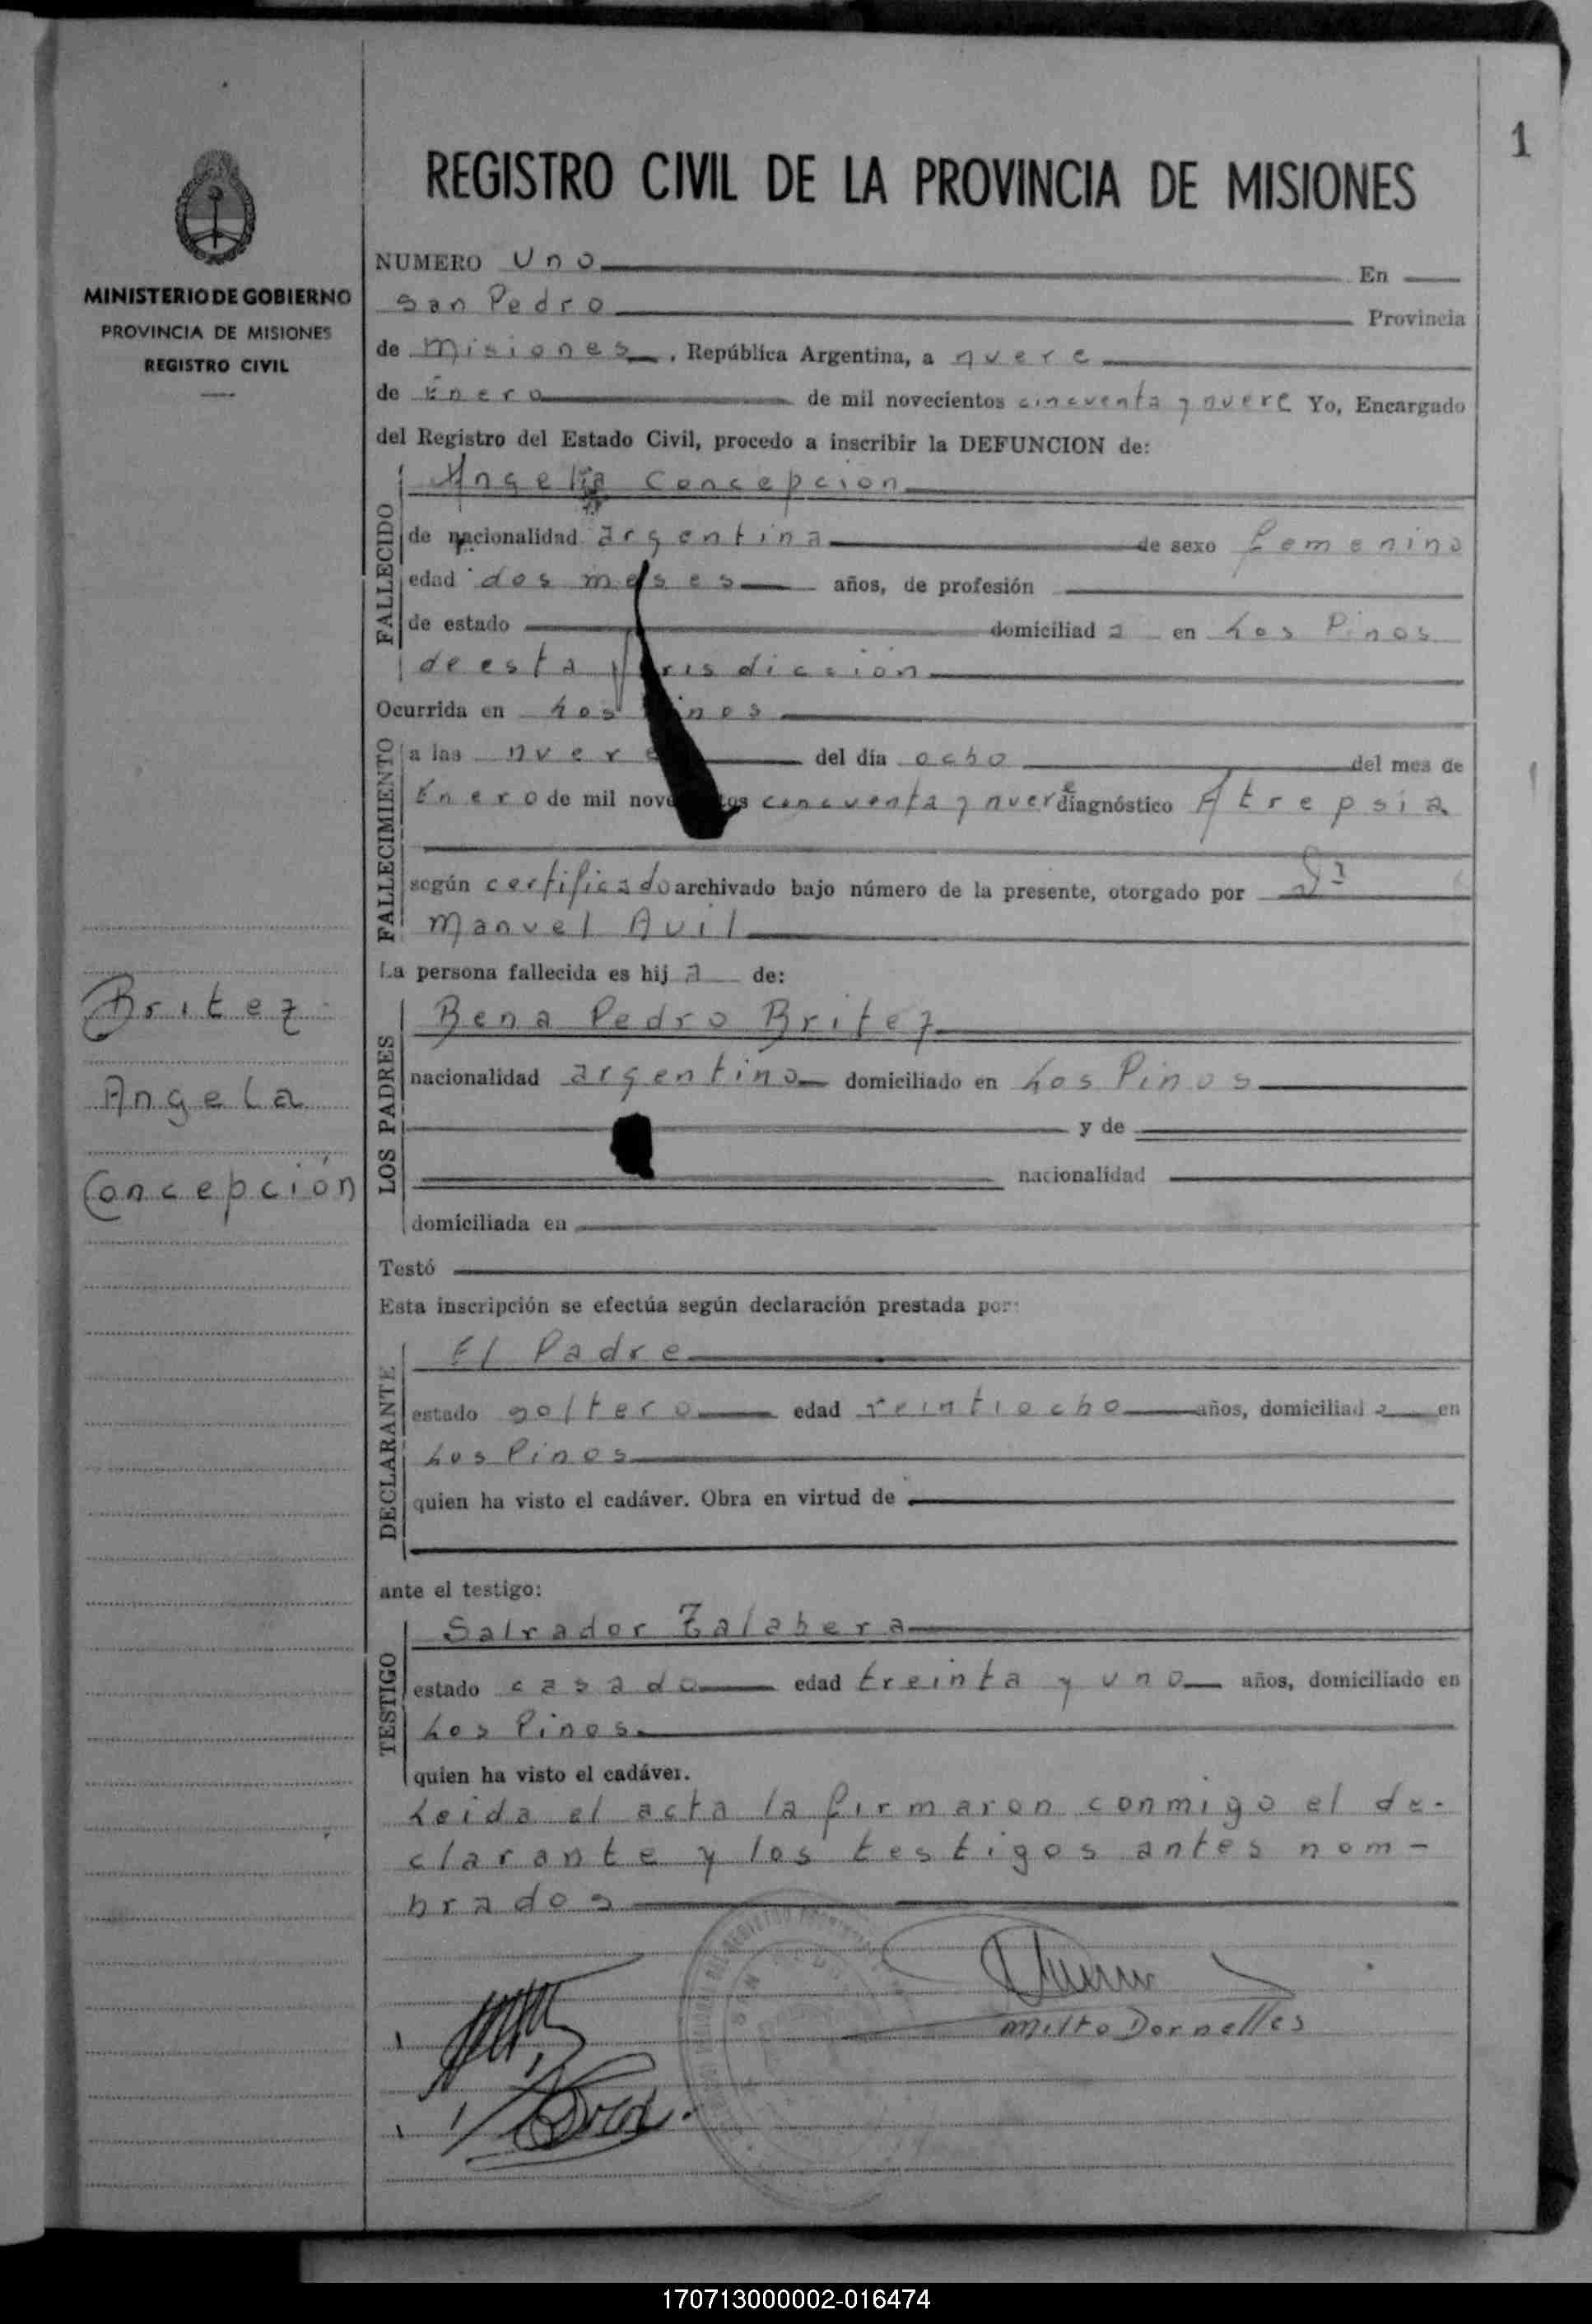 1
REGISTRO CIVIL DE LA PROVINCIA DE MISIONES
MINISTERIO DE GOBIERNO
PROVINCIA DE MISIONES
REGISTRO CIVIL
NUMERO Uno En
San Pedro Provincia
de Misiones, República Argentina, a nueve
de Enero de mil novecientos cincuenta y nueve Yo, Encargado
del Registro del Estado Civil, procedo a inscribir la DEFUNCION de:
FALLECIDO
Angela Concepcion
de nacionalidad argentina de sexo femenino
edad dos meses años, de profesión
de estado domiciliad a en Los Pinos
de esta jurisdiccion
Ocurrida en Los Pinos
FALLECIMIENTO
a las nueve del día ocho del mes de
Enero de mil novecientos cincuenta y nueve diagnóstico Atrepsia
según certificado archivado bajo número de la presente, otorgado por
Manuel Avil
La persona fallecida es hij a de:
Britez
Angela
Concepción
LOS PADRES
Bena Pedro Britez
nacionalidad argentino domiciliado en Los Pinos
y de
nacionalidad
domiciliada en
Testó
Esta inscripción se efectúa según declaración prestada por:
DECLARANTE
El Padre
estado soltero edad veintiocho años, domiciliad o en
Los Pinos
quien ha visto el cadáver. Obra en virtud de
ante el testigo:
TESTIGO
Salvador Zalabera
estado casado edad treinta y uno años, domiciliado en
Los Pinos
quien ha visto el cadáver.
Leida el acta la firmaron conmigo el de-
clarante y los testigos antes nom-
brados
Milto Dornelles
170713000002-016474